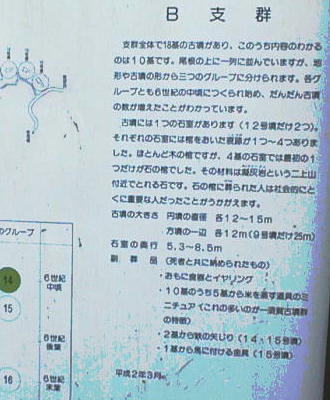 B 支 群
支群全体で18基の古墳があり、このうち内容のわかる
のは10基です。尾根の上に一列に並んでいますが、地
形や古墳の形から三つのグループに分けられます。各グ
ループとも6世紀の中頃につくられ始め、だんだん古墳
の数が増えたことがわかっています。
古墳には1つの石室があります(12号墳だけ2つ)。
それぞれの石室には棺をおいた痕跡が1～4つありま
した。ほとんど木の棺ですが、4基の石室では最初の1
つだけが石の棺でした。その材料は凝灰岩という二上山
付近でとれる石です。石の棺に葬られた人は社会的にと
くに重要な人だったことがうかがえます。
古墳の大きさ 円墳の直径 各12～15m
方墳の一辺 各12m(9号墳だけ25m)
石室の奥行 5.3～8.5m
副葬品 (死者と共に納められたもの)
・おもに食器とイヤリング
・10基のうち5基から米を蒸す道具のミ
ニチュア(これの多いのが一須賀古墳群
の特徴)
・2基から鉄の矢じり(14・15号墳)
・1基から馬に付ける金具(15号墳)
平成2年3月
のグループ
14
6世紀
中頃
15
6世紀
後葉
16
6世紀
末葉